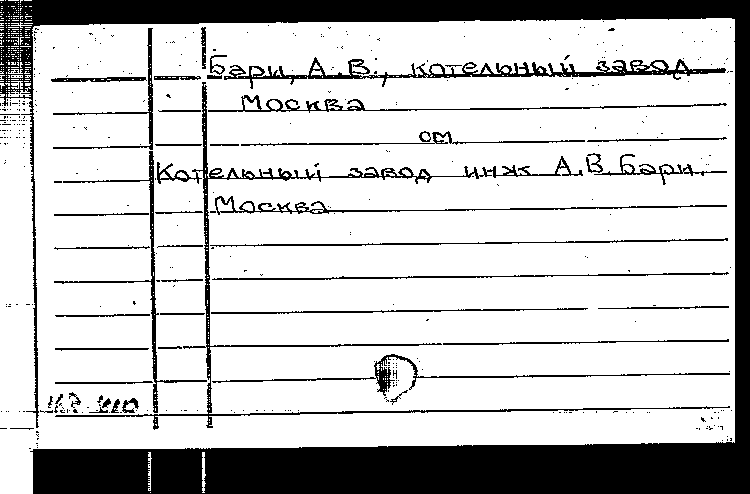 Бари, А.В., котельный завод
Москва
см.
Котельный завод инж А.В. Бари.
Москва